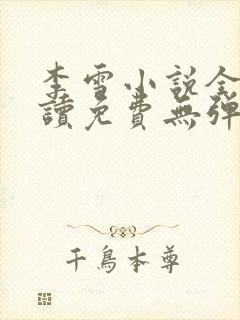 李雪小說全
讀免費無彈
千鳥本尊